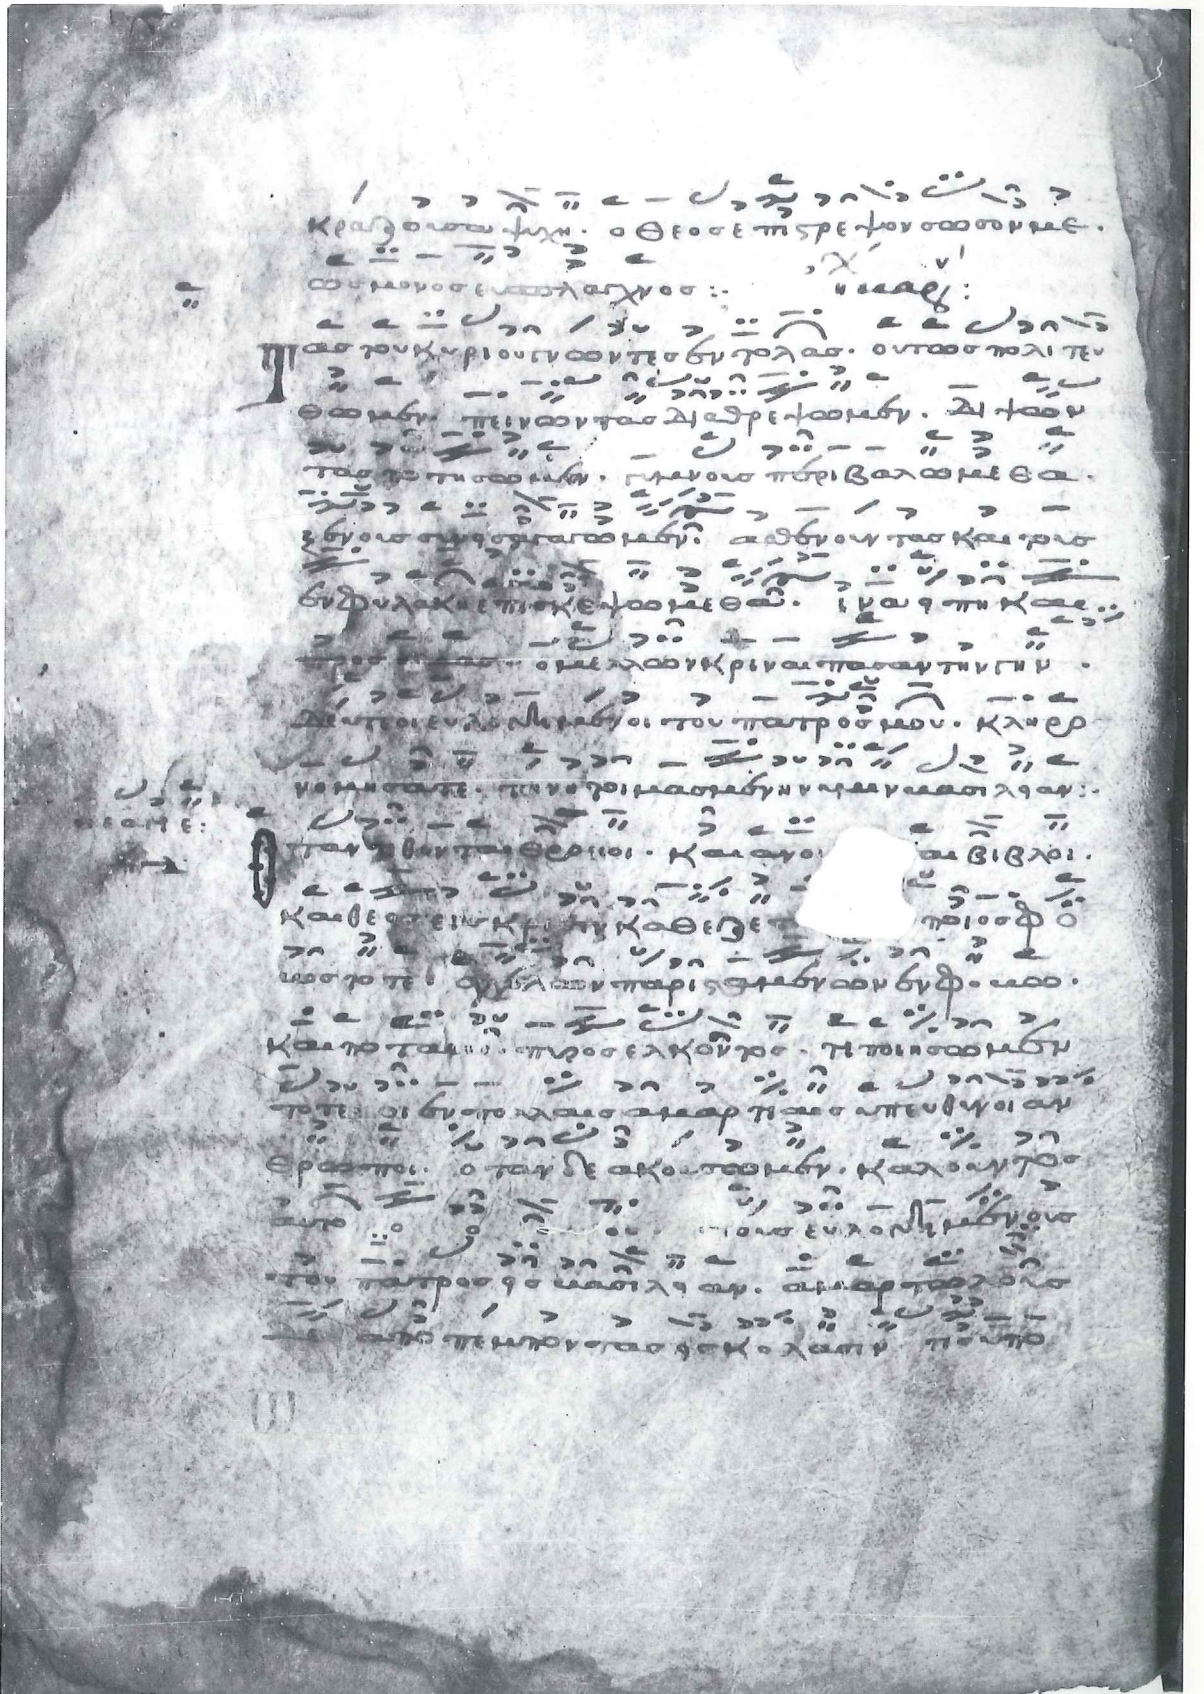 κραζουσα ψυχη· ο θεος επιστρεψον σωσον με·
ως μονος ευσπλαγχνος:·
Τας του κυριου γνωντες εντολας· ουτως πολιτευ
θωμεν· πεινωντας διαθρεψωμεν· διψων
τας ποτησωμεν· γυμνους περιβαλωμεθα·
ξενους συνεισαγαγωμεν· ασθενουντας και τους
εν φυλακη επισκεψωμεθα· ινα ειπη και
προς ο μελλων κριναι πασαν την γην·
Δευτε οι ευλογημενοι του πατρος μου· κληρο
νομησατε· την ητοιμασμενην υμιν βασιλειαν:·
Οταν θρονοι· και ανοι αι βιβλοι·
και θεος εις κρισιν καθεζετ ποιος φο
βος τοτε αγγελων παρισταμενων εν φοβω·
και ποταμου προς ελκοντος· τι ποιησωμεν
τοτε οι εν πολλαις αμαρτιαις υπευθυνοι αν
θρωποι· οταν δε ακουσωμεν· καλουντος
αυτο τους ευλογημενους
του πατρος εις βασιλειαν· αμαρτωλους
δε αποπεμποντας εις κολασιν υπο